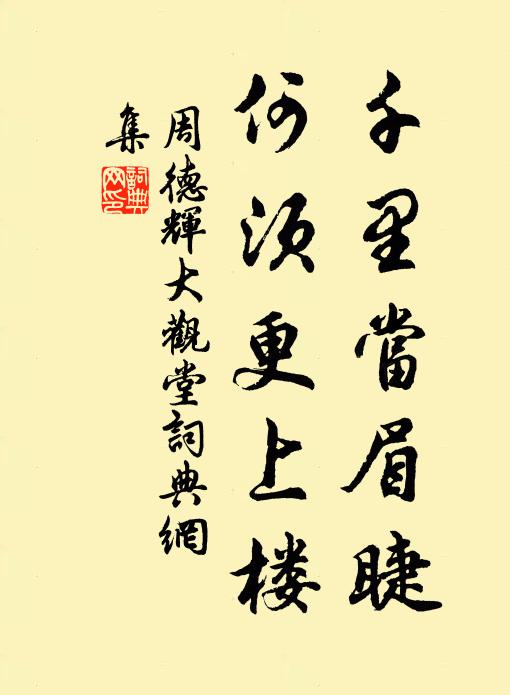 千里當眉睫
何須更上楼
周德輝大觀堂詞典網
集
詞典網印